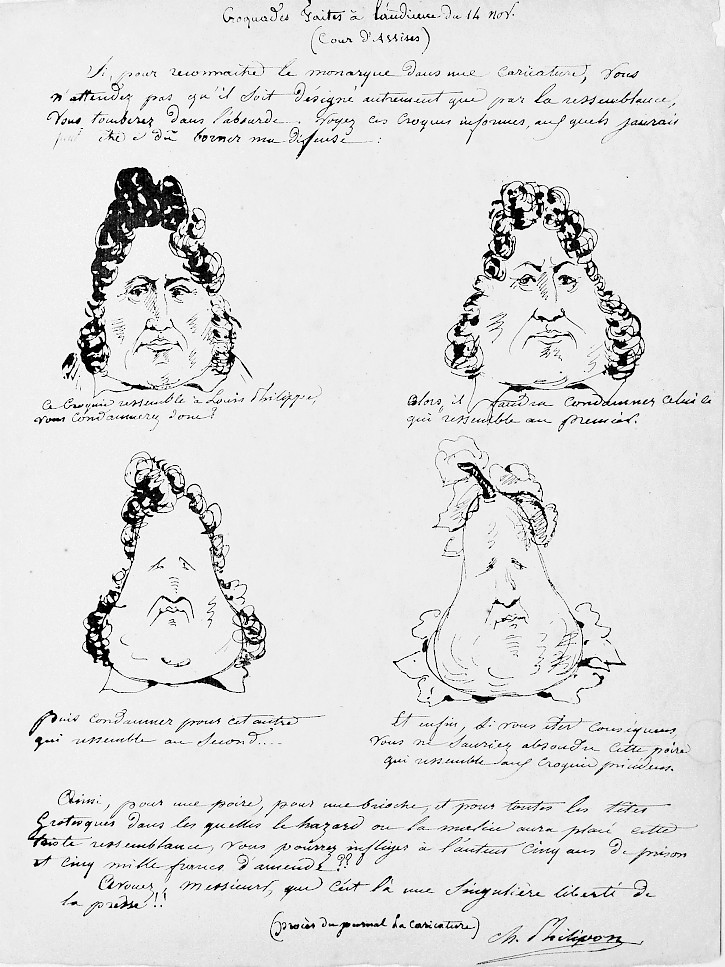 Croquades faites à l'audience du 14 Nov.
(Cour d'Assises)
Si, pour reconnaitre le monarque dans une caricature, vous
n'attendez pas qu'il soit désigné autrement que par la ressemblance,
vous tomberez dans l'absurde. Voyez ces croquis informes, aux quels j'aurais
peut être dû borner ma défense :
Ce Croquis ressemble à Louis Philippe,
vous condamnerez donc ?
Alors, il faudra condamner celui ci
qui ressemble au premier.
Puis condamner pour cet autre
qui ressemble au second....
Et enfin, si vous êtes conséquens,
vous ne sauriez absoudre cette poire
qui ressemble aux croquis précédens.
Ainsi, pour une poire, pour une brioche, et pour toutes les têtes
Grotesques dans les quelles le hazard ou la malice aura placé cette
triste ressemblance, vous pourrez infliger à l'auteur cinq ans de prison
et cinq mille francs d'amende ??
Avouez, Messieurs, que c'est là une singulière liberté de
la presse !!
(procès du journal La Caricature)
Ch. Philipon